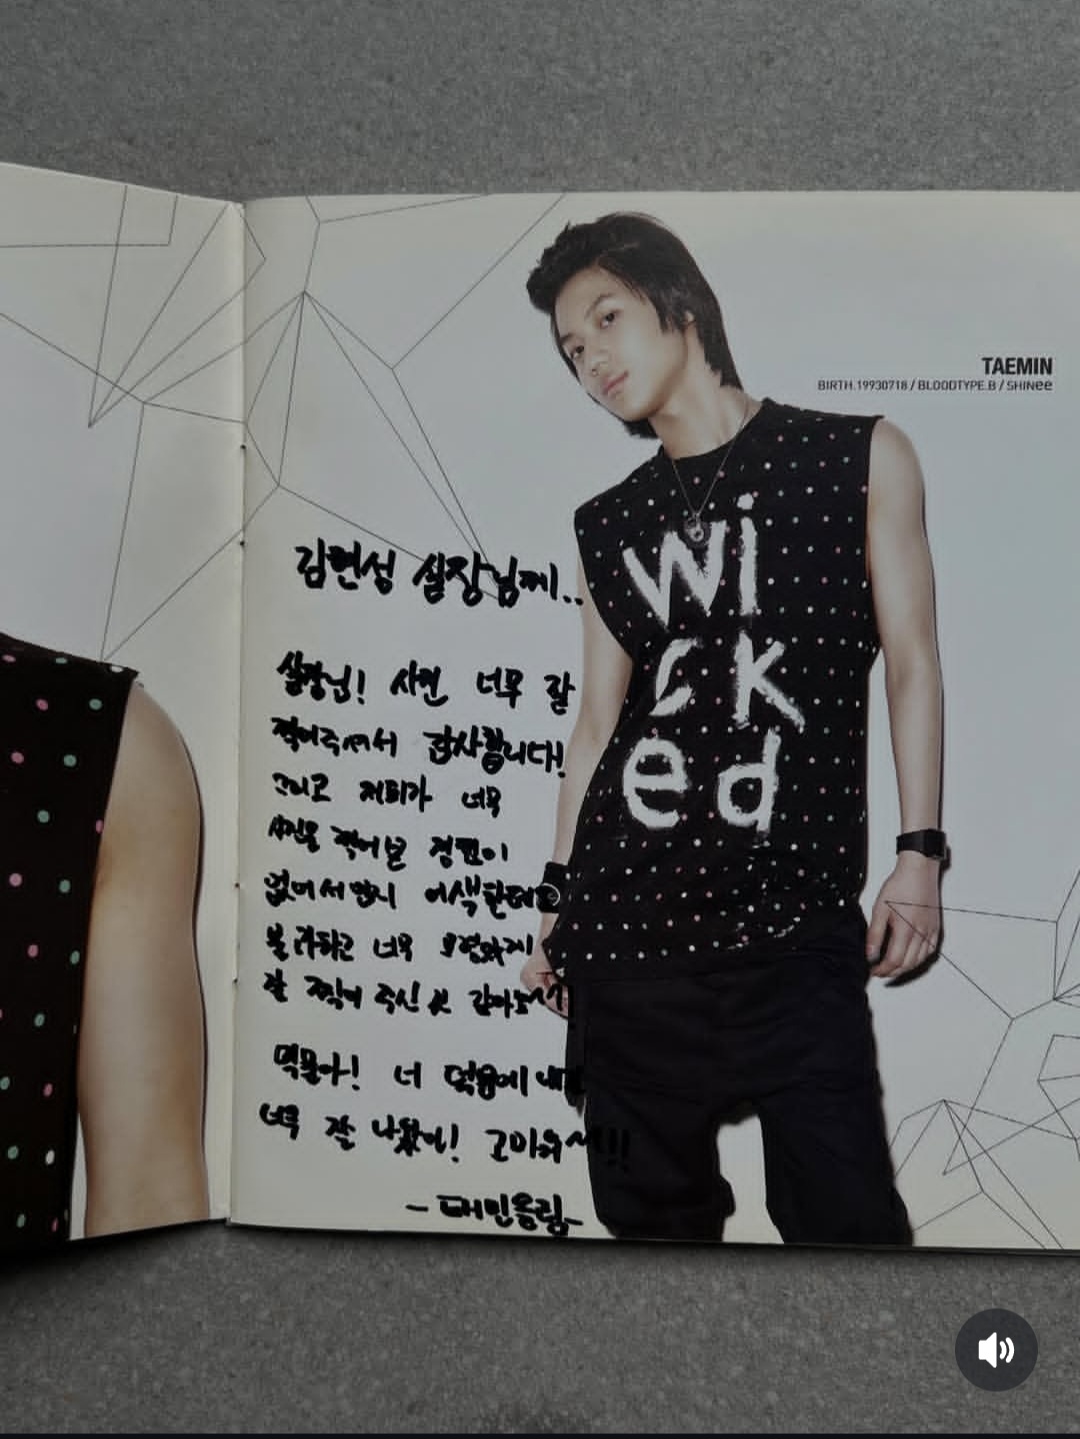 TAEMIN
BIRTH.19930718 / BLOODTYPE.B / SHINee
wi
ck
ed
김현성 실장님께..
실장님! 사진 너무 잘
찍어주셔서 감사합니다!
그리고 저희가 너무
사진을 찍어본 경험이
없어서인지 어색한데도
불구하고 너무
잘 찍어 주신 것 같아요^^
너 덕분에
너무 잘 나왔어! 고마워~!!
-태민올림-